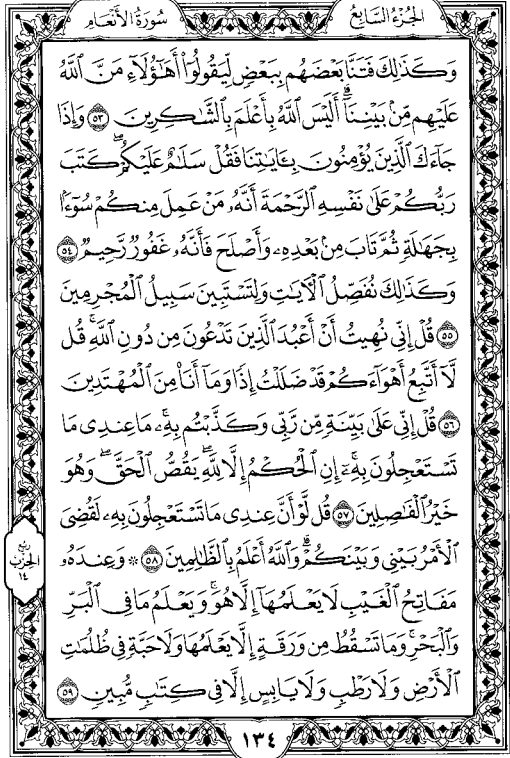 سُورَةُ الأَنْعَامِ
الجُزْءُ السَّابِعُ
وَكَذَٰلِكَ فَتَنَّا بَعْضَهُم بِبَعْضٍ لِّيَقُولُوٓا۟ أَهَـٰٓؤُلَآءِ مَنَّ ٱللَّهُ
عَلَيْهِم مِّنۢ بَيْنِنَآ ۗ أَلَيْسَ ٱللَّهُ بِأَعْلَمَ بِٱلشَّـٰكِرِينَ ٥٣ وَإِذَا
جَآءَكَ ٱلَّذِينَ يُؤْمِنُونَ بِـَٔايَـٰتِنَا فَقُلْ سَلَـٰمٌ عَلَيْكُمْ ۖ كَتَبَ
رَبُّكُمْ عَلَىٰ نَفْسِهِ ٱلرَّحْمَةَ أَنَّهُۥ مَنْ عَمِلَ مِنكُمْ سُوٓءًۢا
بِجَهَـٰلَةٍ ثُمَّ تَابَ مِنۢ بَعْدِهِۦ وَأَصْلَحَ فَأَنَّهُۥ غَفُورٌ رَّحِيمٌ ٥٤
وَكَذَٰلِكَ نُفَصِّلُ ٱلْـَٔايَـٰتِ وَلِتَسْتَبِينَ سَبِيلُ ٱلْمُجْرِمِينَ
٥٥ قُلْ إِنِّى نُهِيتُ أَنْ أَعْبُدَ ٱلَّذِينَ تَدْعُونَ مِن دُونِ ٱللَّهِ ۚ قُل
لَّآ أَتَّبِعُ أَهْوَآءَكُمْ ۙ قَدْ ضَلَلْتُ إِذًا وَمَآ أَنَا۠ مِنَ ٱلْمُهْتَدِينَ
٥٦ قُلْ إِنِّى عَلَىٰ بَيِّنَةٍ مِّن رَّبِّى وَكَذَّبْتُم بِهِۦ ۚ مَا عِندِى مَا
تَسْتَعْجِلُونَ بِهِۦٓ ۚ إِنِ ٱلْحُكْمُ إِلَّا لِلَّهِ ۖ يَقُصُّ ٱلْحَقَّ ۖ وَهُوَ
خَيْرُ ٱلْفَـٰصِلِينَ ٥٧ قُل لَّوْ أَنَّ عِندِى مَا تَسْتَعْجِلُونَ بِهِۦ لَقُضِىَ
ٱلْأَمْرُ بَيْنِى وَبَيْنَكُمْ ۗ وَٱللَّهُ أَعْلَمُ بِٱلظَّـٰلِمِينَ ٥٨ ۞ وَعِندَهُۥ
مَفَاتِحُ ٱلْغَيْبِ لَا يَعْلَمُهَآ إِلَّا هُوَ ۚ وَيَعْلَمُ مَا فِى ٱلْبَرِّ
وَٱلْبَحْرِ ۚ وَمَا تَسْقُطُ مِن وَرَقَةٍ إِلَّا يَعْلَمُهَا وَلَا حَبَّةٍ فِى ظُلُمَـٰتِ
ٱلْأَرْضِ وَلَا رَطْبٍ وَلَا يَابِسٍ إِلَّا فِى كِتَـٰبٍ مُّبِينٍ ٥٩
ربع
الحزب
١٤
١٣٤